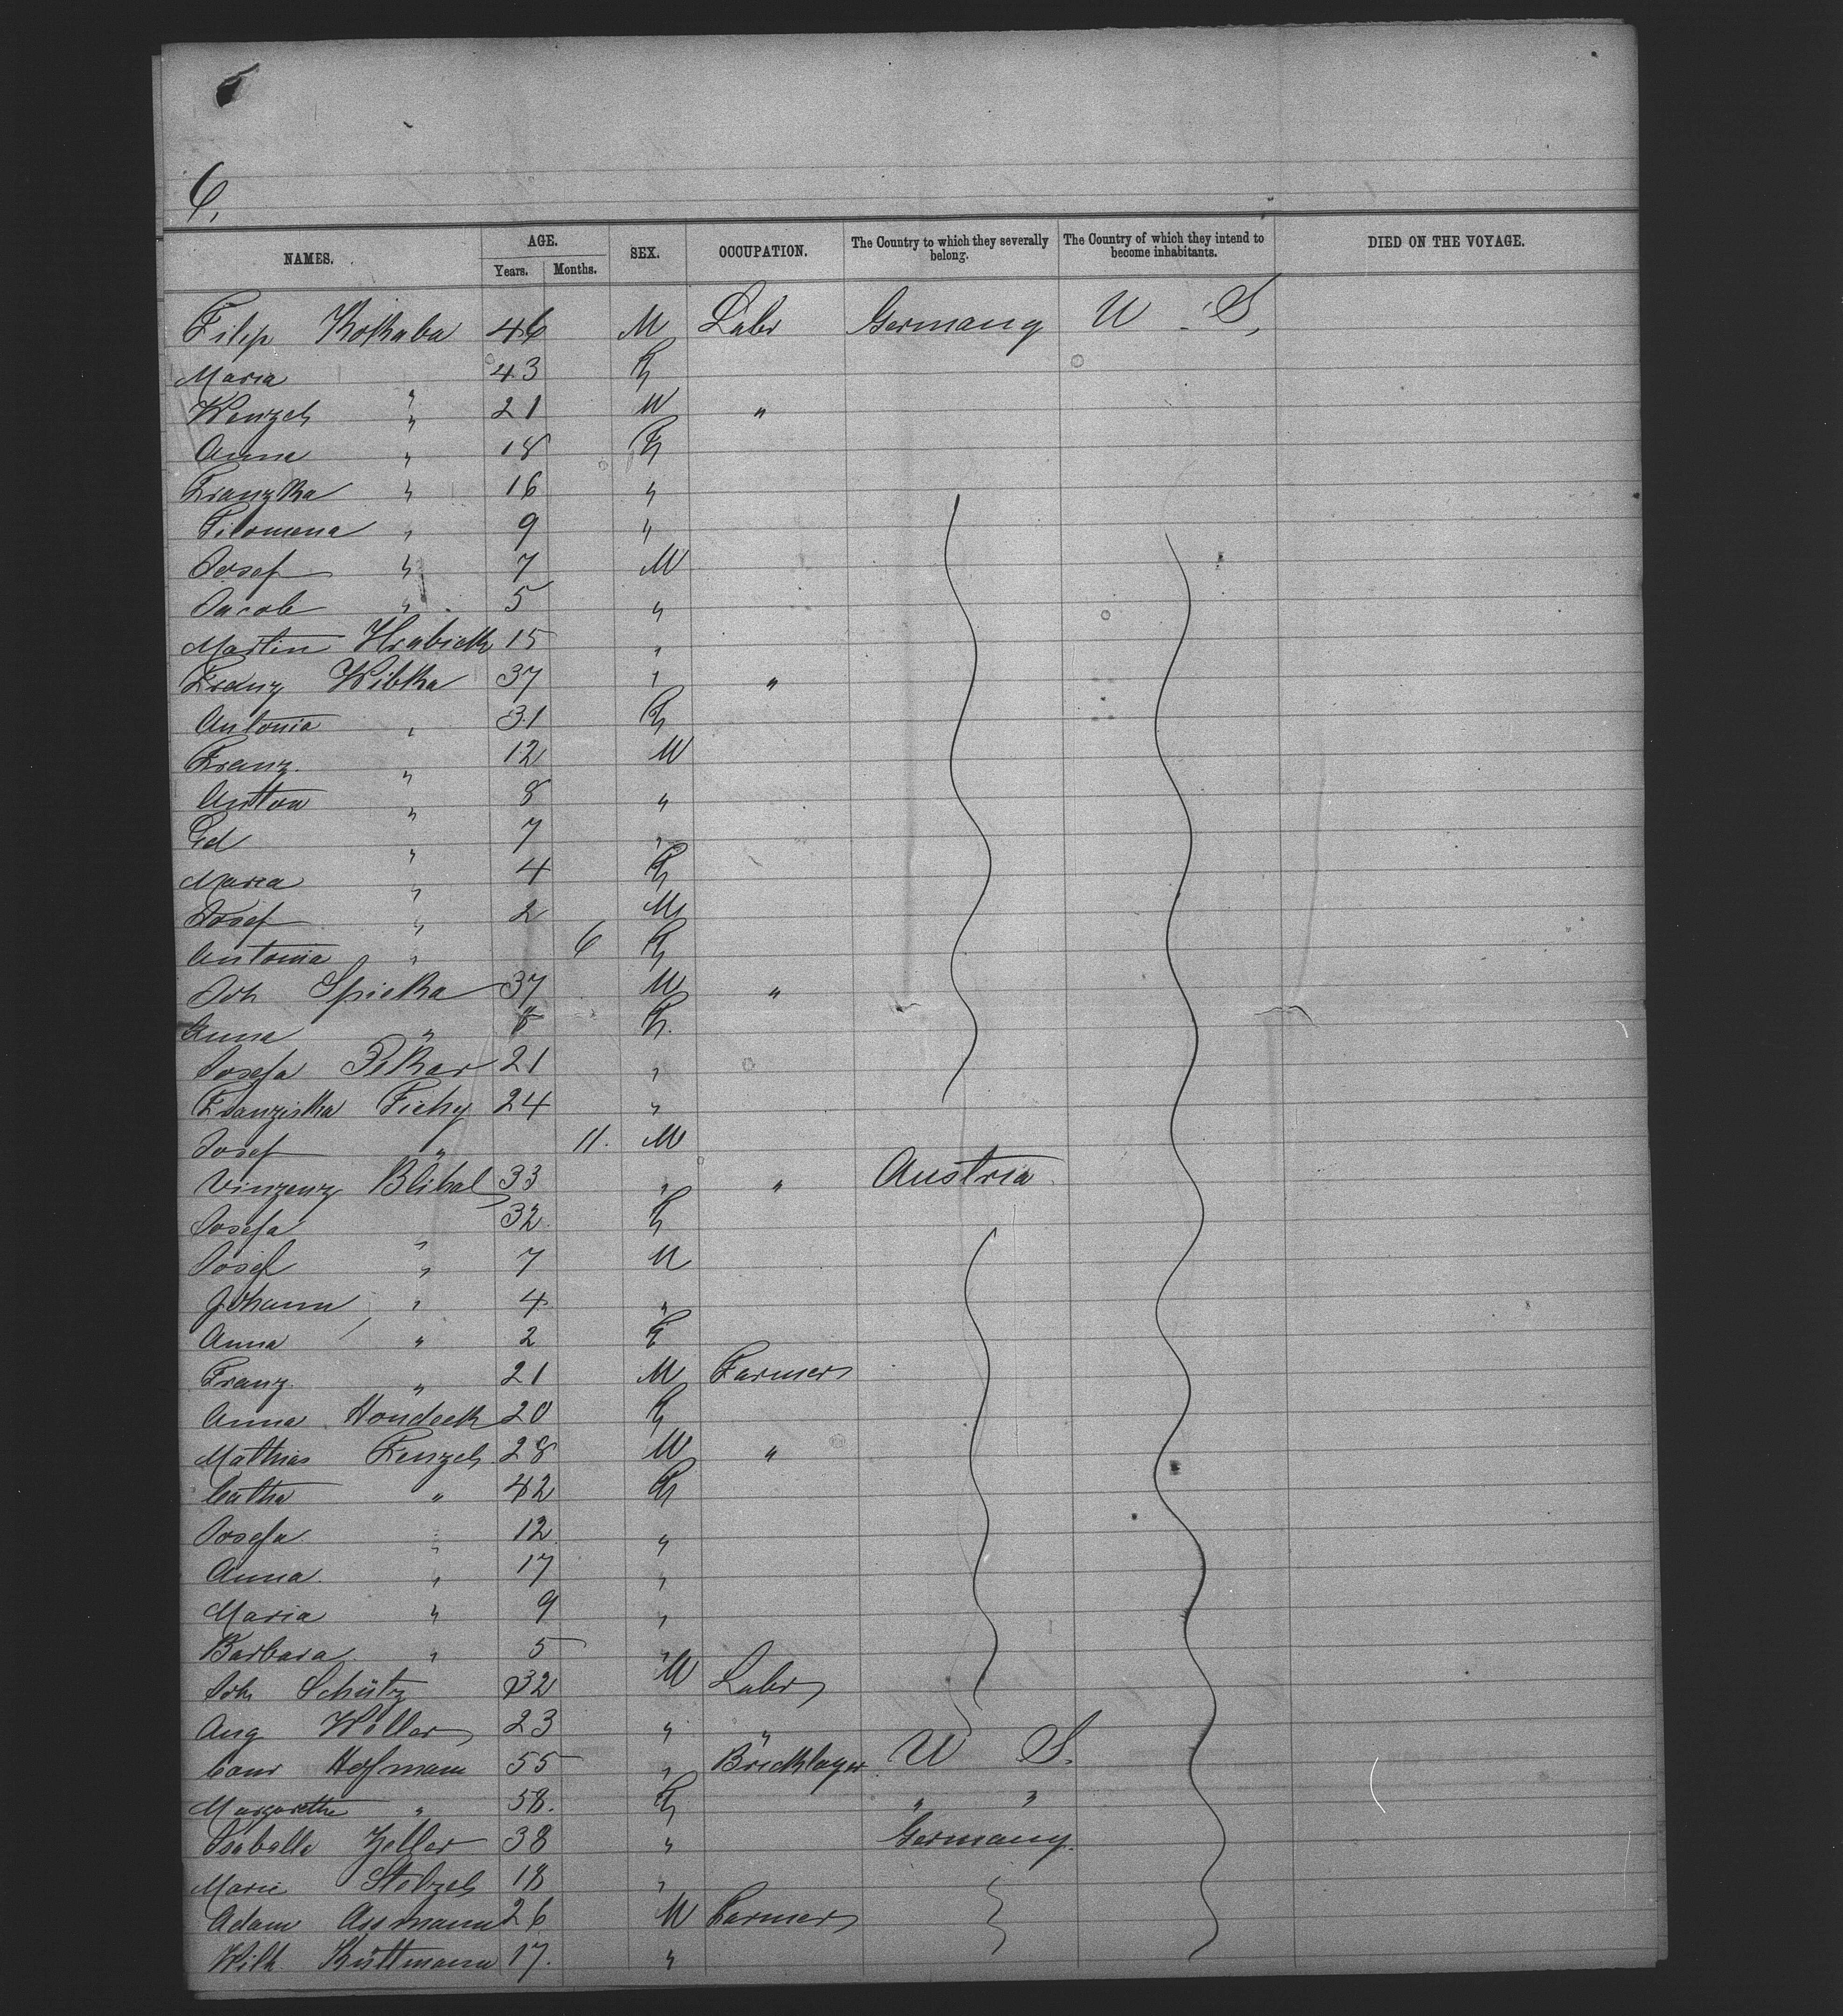 6.
NAMES. AGE. SEX. OCCUPATION. The Country to which they severally belong. The Country of which they intend to become inhabitants. DIED ON THE VOYAGE.
Years. Months.
Filip Kokaba 46 M Labr Germany U. S.
Maria " 43 F
Wenzel " 21 M "
Anna " 18 F
Franzka " 16 "
Filomena " 9 "
Josef " 7 M
Jacob " 5 "
Martin Hrabick 15 "
Franz Wibka 37 " "
Antonia " 31 F
Franz " 12 M
Anton " 8 "
Ed " 7 "
Maria " 4 F
Josef " 2 M
Antonia " 6 F
Joh Spicka 37 M "
Anna " 8 F.
Josefa Pekar 21 "
Franziska Fichy 24 "
Josef " 11. M
Vinzenz Blihal 33 " " Austria
Josefa " 32. F
Josef " 7 M
Johann " 4 "
Anna " 2 F
Franz " 21 M Farmer
Anna Hondeck 20 F
Mathias Fenzel 28 M "
Catha " 42 F
Josefa " 12 "
Anna " 17 "
Maria " 9 "
Barbara " 5 "
Joh Schütz 32 M Labr
Aug Willer 23 " "
Conr Hofmann 55 " Bricklayer U S.
Margarethe " 58. F " "
Isabella Zeller 38 " Germany.
Marie Stolzel 18 "
Adam Assmann 26 M Farmer
Wilh. Küttmann 17. "